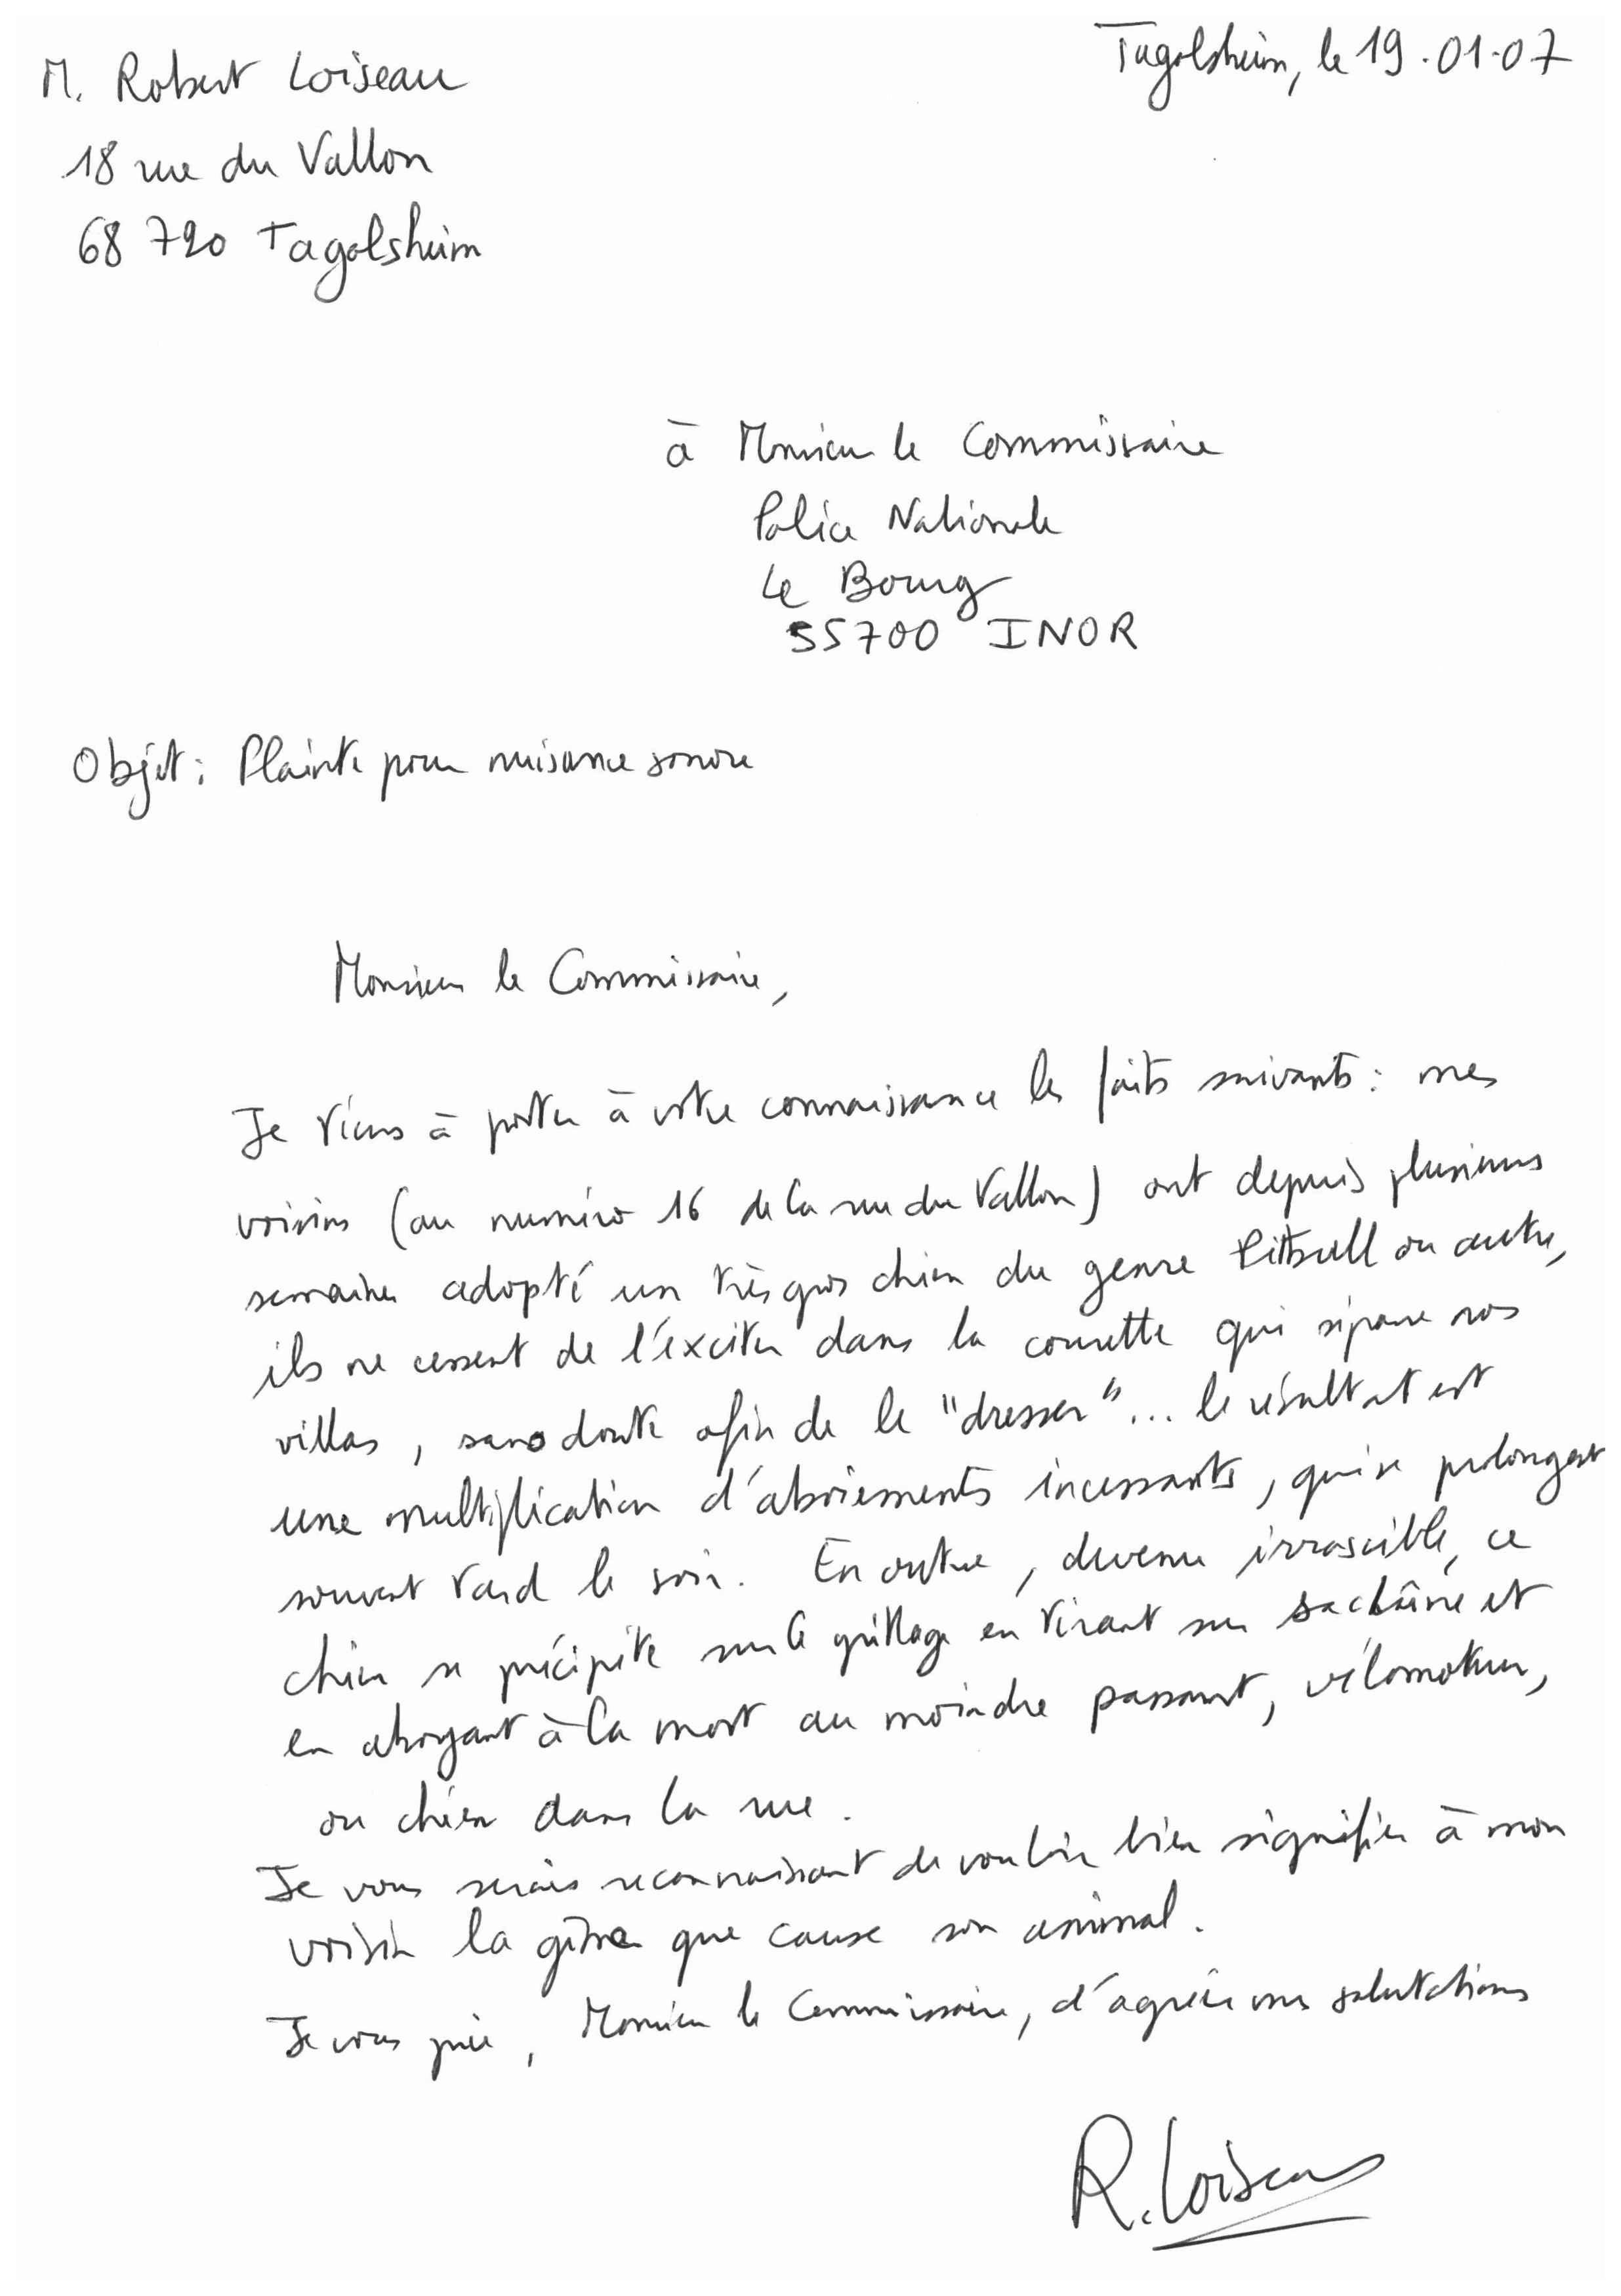 M. Robert Loiseau
Tagolsheim, le 19.01.07
18 rue du Vallon
68 720 Tagolsheim
à Monsieur le Commissaire
Police Nationale
Le Bourg
55700 INOR
Objet : Plainte pour nuisance sonore
Monsieur le Commissaire,
Je viens à porter à votre connaissance les faits suivants : mes
voisins (au numéro 16 de la rue du Vallon) ont depuis plusieurs
semaines adopté un très gros chien du genre Pittbull ou autre,
ils ne cessent de l'éxciter dans la courette qui sépare nos
villas, sans doute afin de le "dresser"... le résultat est
une multiplication d'aboiements incessants, qui se prolongent
souvent tard le soir. En outre, devenu irrascible, ce
chien se précipite sur le grillage en tirant sur sa chaîne et
en aboyant à la mort au moindre passant, vélomoteur,
ou chien dans la rue.
Je vous serais reconnaissant de vouloir bien signifier à mon
voisin la gêne que cause son animal.
Je vous prie, Monsieur le Commissaire, d'agréer mes salutations
R. Loiseau